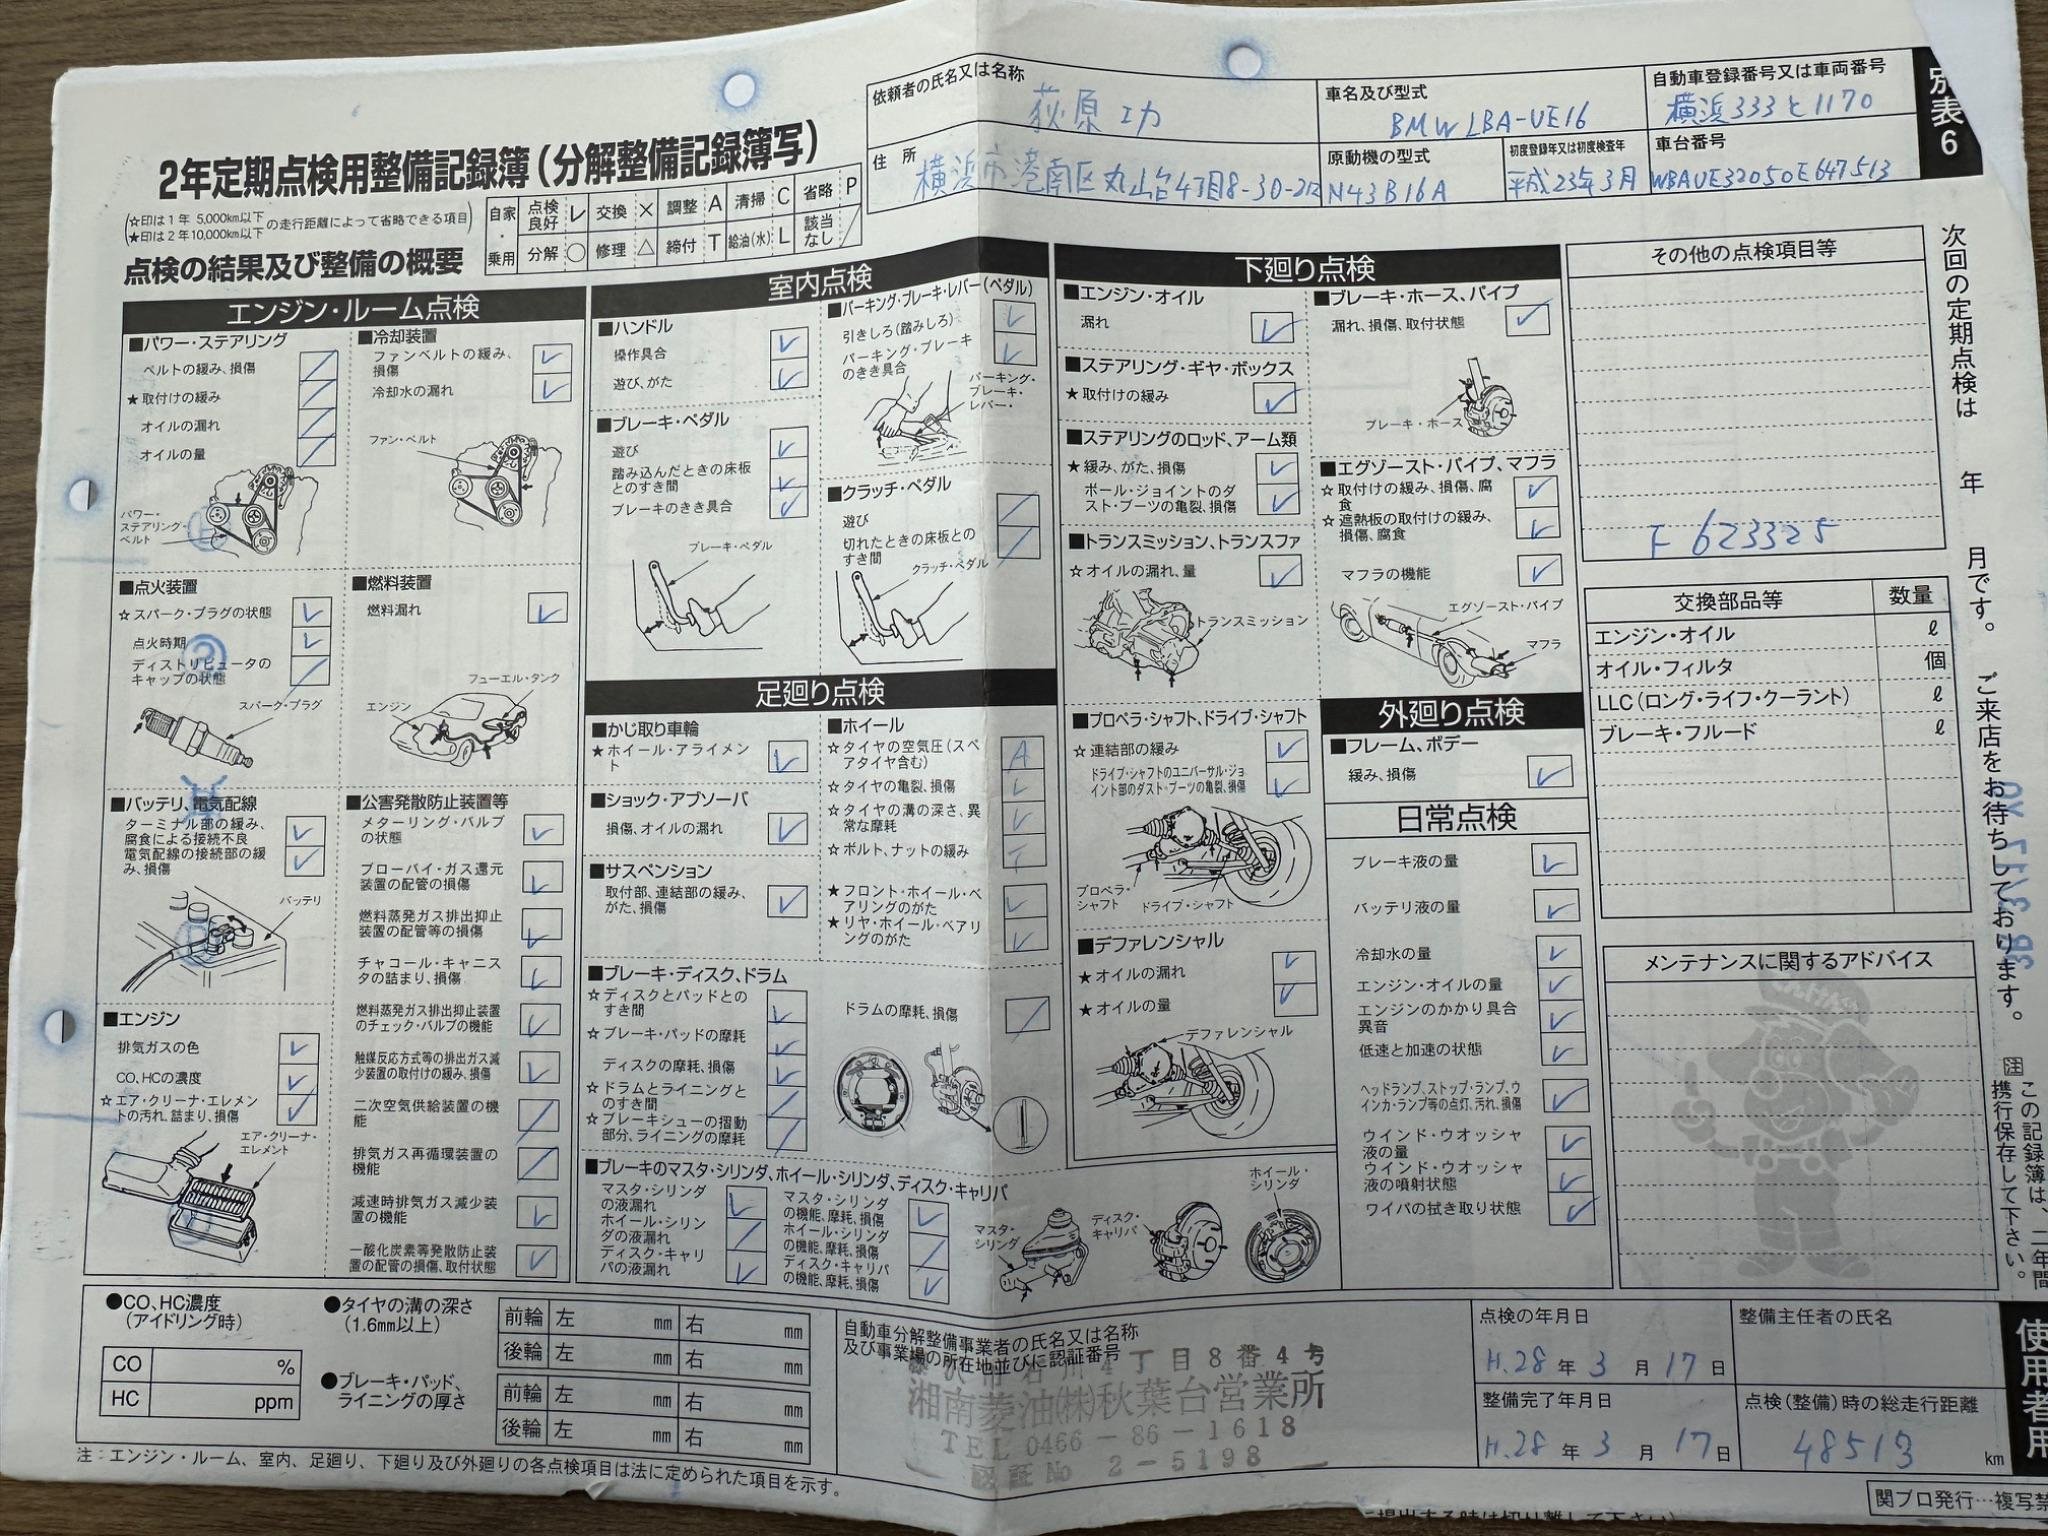 別表6
依頼者の氏名又は名称
荻原 功
車名及び型式
BMW LBA-UE16
自動車登録番号又は車両番号
横浜333と1170
住所
横浜市港南区丸山台4丁目8-30-212
原動機の型式
N43B16A
初度登録年又は初度検査年
平成23年3月
車台番号
WBAUE32050E647513
2年定期点検用整備記録簿(分解整備記録簿写)
(☆印は1年 5,000km以下
★印は2年10,000km以下 の走行距離によって省略できる項目)
点検の結果及び整備の概要
自家・乗用
点検良好 レ 交換 × 調整 A 清掃 C 省略 P
分解 ○ 修理 △ 締付 T 給油(水) L 該当なし /
エンジン・ルーム点検
■パワー・ステアリング
ベルトの緩み、損傷
★取付けの緩み
オイルの漏れ
オイルの量
パワー・
ステアリング・
ベルト
■冷却装置
ファンベルトの緩み、
損傷
冷却水の漏れ
ファン・ベルト
■点火装置
☆スパーク・プラグの状態
点火時期
ディストリビュータの
キャップの状態
スパーク・プラグ
■燃料装置
燃料漏れ
フューエル・タンク
エンジン
■バッテリ、電気配線
ターミナル部の緩み、
腐食による接続不良
電気配線の接続部の緩
み、損傷
バッテリ
■公害発散防止装置等
メターリング・バルブ
の状態
ブローバイ・ガス還元
装置の配管の損傷
燃料蒸発ガス排出抑止
装置の配管等の損傷
チャコール・キャニス
タの詰まり、損傷
燃料蒸発ガス排出抑止装置
のチェック・バルブの機能
触媒反応方式等の排出ガス減
少装置の取付けの緩み、損傷
二次空気供給装置の機
能
排気ガス再循環装置の
機能
減速時排気ガス減少装
置の機能
一酸化炭素等発散防止装
置の配管の損傷、取付状態
■エンジン
排気ガスの色
CO、HCの濃度
☆エア・クリーナ・エレメン
トの汚れ、詰まり、損傷
エア・クリーナ・
エレメント
室内点検
■ハンドル
操作具合
遊び、がた
■ブレーキ・ペダル
遊び
踏み込んだときの床板
とのすき間
ブレーキのきき具合
ブレーキ・ペダル
■パーキング・ブレーキ・レバー(ペダル)
引きしろ(踏みしろ)
パーキング・ブレーキ
のきき具合
パーキング・
ブレーキ・
レバー・
■クラッチ・ペダル
遊び
切れたときの床板との
すき間
クラッチ・ペダル
足廻り点検
■かじ取り車輪
★ホイール・アライメン
ト
■ショック・アブソーバ
損傷、オイルの漏れ
■サスペンション
取付部、連結部の緩み、
がた、損傷
■ホイール
☆タイヤの空気圧(スペ
アタイヤ含む) A
☆タイヤの亀裂、損傷
☆タイヤの溝の深さ、異
常な摩耗
☆ボルト、ナットの緩み T
★フロント・ホイール・ベ
アリングのがた
★リヤ・ホイール・ベアリ
ングのがた
■ブレーキ・ディスク、ドラム
☆ディスクとパッドとの
すき間
☆ブレーキ・パッドの摩耗
ディスクの摩耗、損傷
☆ドラムとライニングと
のすき間
☆ブレーキシューの摺動
部分、ライニングの摩耗
ドラムの摩耗、損傷
■ブレーキのマスタ・シリンダ、ホイール・シリンダ、ディスク・キャリパ
マスタ・シリンダ
の液漏れ
ホイール・シリン
ダの液漏れ
ディスク・キャリ
パの液漏れ
マスタ・シリンダ
の機能、摩耗、損傷
ホイール・シリンダ
の機能、摩耗、損傷
ディスク・キャリパ
の機能、摩耗、損傷
マスタ・
シリンダ
ディスク・
キャリパ
ホイール・
シリンダ
下廻り点検
■エンジン・オイル
漏れ
■ステアリング・ギヤ・ボックス
★取付けの緩み
■ステアリングのロッド、アーム類
★緩み、がた、損傷
ボール・ジョイントのダ
スト・ブーツの亀裂、損傷
■トランスミッション、トランスファ
☆オイルの漏れ、量
トランスミッション
■プロペラ・シャフト、ドライブ・シャフト
☆連結部の緩み
ドライブ・シャフトのユニバーサル・ジョ
イント部のダスト・ブーツの亀裂、損傷
プロペラ・
シャフト
ドライブ・シャフト
■デファレンシャル
★オイルの漏れ
★オイルの量
デファレンシャル
■ブレーキ・ホース、パイプ
漏れ、損傷、取付状態
ブレーキ・ホース
■エグゾースト・パイプ、マフラ
☆取付けの緩み、損傷、腐
食
☆遮熱板の取付けの緩み、
損傷、腐食
マフラの機能
エグゾースト・パイプ
マフラ
外廻り点検
■フレーム、ボデー
緩み、損傷
日常点検
ブレーキ液の量
バッテリ液の量
冷却水の量
エンジン・オイルの量
エンジンのかかり具合
異音
低速と加速の状態
ヘッドランプ、ストップ・ランプ、ウ
インカ・ランプ等の点灯、汚れ、損傷
ウインド・ウオッシャ
液の量
ウインド・ウオッシャ
液の噴射状態
ワイパの拭き取り状態
その他の点検項目等
F 623325
交換部品等 数量
エンジン・オイル ℓ
オイル・フィルタ 個
LLC(ロング・ライフ・クーラント) ℓ
ブレーキ・フルード ℓ
メンテナンスに関するアドバイス
次回の定期点検は 年 月です。ご来店をお待ちしております。
注 この記録簿は、二年間
携行保存して下さい。
使用者用
●CO、HC濃度
(アイドリング時)
CO %
HC ppm
●タイヤの溝の深さ
(1.6mm以上)
前輪 左 mm 右 mm
後輪 左 mm 右 mm
●ブレーキ・パッド、
ライニングの厚さ
前輪 左 mm 右 mm
後輪 左 mm 右 mm
注:エンジン・ルーム、室内、足廻り、下廻り及び外廻りの各点検項目は法に定められた項目を示す。
自動車分解整備事業者の氏名又は名称
及び事業場の所在地並びに認証番号
石川4丁目8番4号
湘南菱油(株)秋葉台営業所
TEL 0466-86-1618
認証No 2-5198
点検の年月日
H.28年3月17日
整備主任者の氏名
整備完了年月日
H.28年3月17日
点検(整備)時の総走行距離
48513 km
関ブロ発行…複写禁